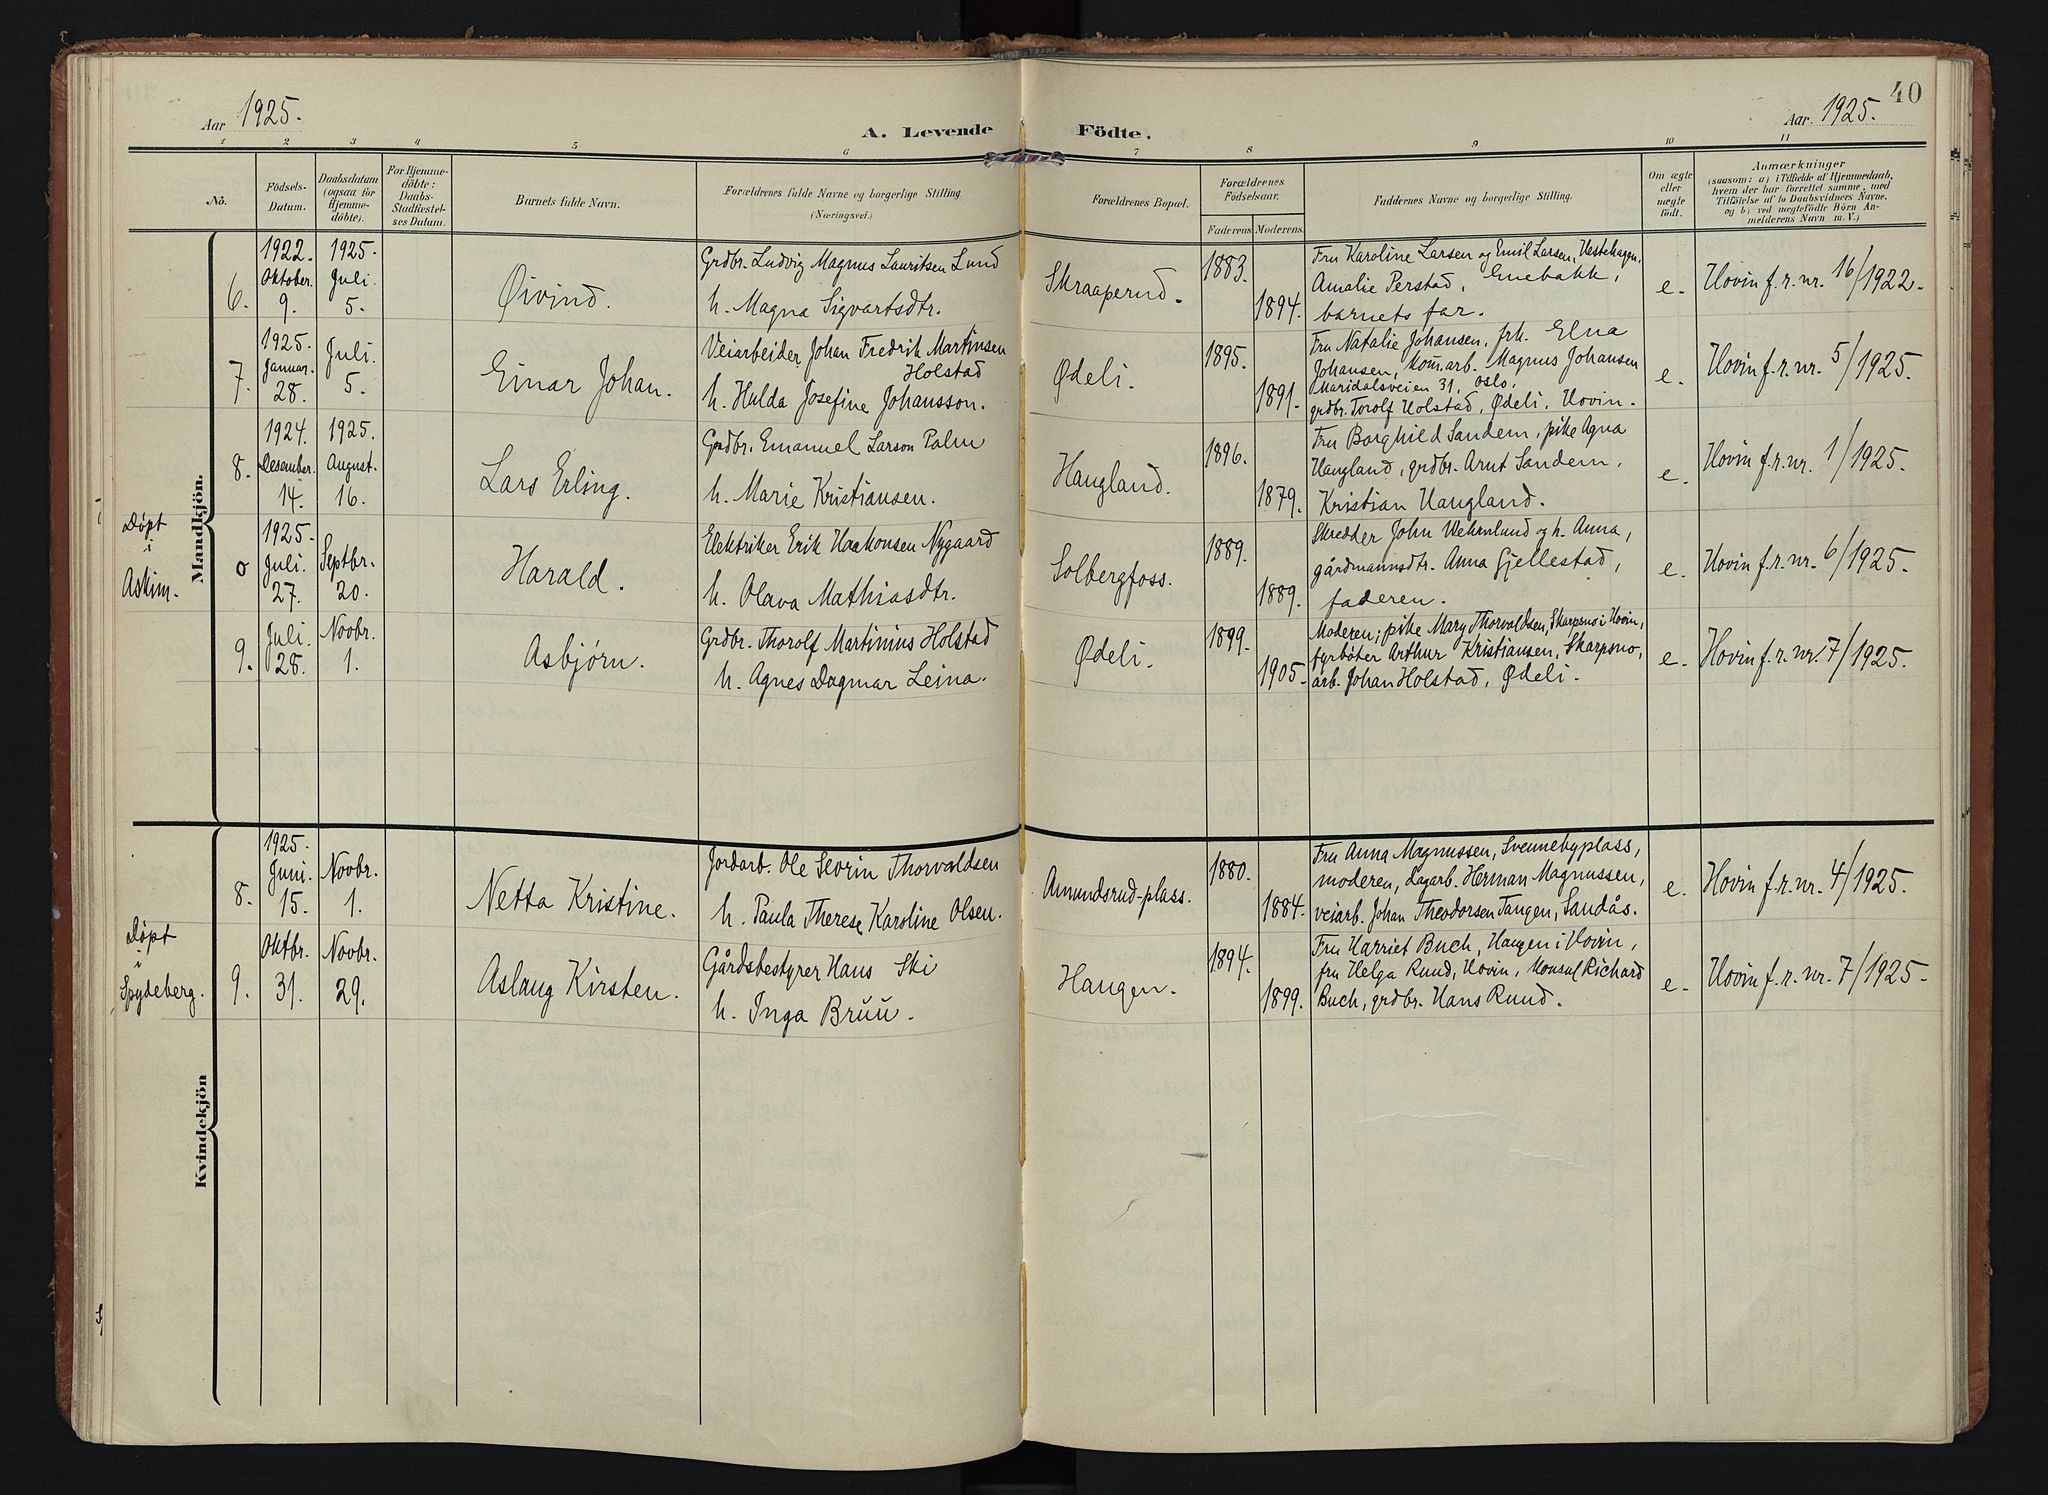 Aar 1925.
A. Levende Födte.
Aar 1925.
40
1 2 3 4 5 6 7 8 9 10 11
No.
Födsels-Datum.
Daabsdatum (ogsaa for Hjemme-döbte).
For Hjemme-döbte: Daabs-Stadfæstel-ses Datum.
Barnets fulde Navn.
Forældrenes fulde Navne og borgerlige Stilling. (Næringsvei.)
Forældrenes Bopæl.
Forældrenes Födselsaar.
Faderens Moderens.
Faddernes Navne og borgerlige Stilling.
Om ægte eller uægte födt.
Anmærkninger
(saasom: a) i Tilfælde af Hjemmedaab,
hvem der har forrettet samme, med
Tilföielse af to Daabsvidners Navne,
og b) ved uægtefödte Börn An-
melderens Navn m. V.)
Mandkjön.
6. 1922. Oktober. 9.
1925. Juli. 5.
Øivind.
Grdbr. Ludvig Magnus Lauritsen Lund
h. Magna Sigvartsdtr.
Skraaperud.
1883.
1894.
Fru Karoline Larsen og Emil Larsen, Vestehagen,
Amalie Perstad, Enebakk,
barnets far.
e.
Hovin f. r. nr. 16/1922.
7. 1925. Januar. 28.
Juli. 5.
Einar Johan.
Veiarbeider Johan Fredrik Martinsen
Holstad
h. Hulda Josefine Johansson.
Ødeli.
1895.
1891.
Fru Natalie Johansen, frk. Elna
Johansen, kom.arb. Magnus Johansen
Maridalsveien 31, Oslo,
grdbr. Torolf Holstad, Ødeli, Hovin.
e.
Hovin f. r. nr. 5/1925.
8. 1924. Desember. 14.
1925. August. 16.
Lars Erling.
Grdbr. Emanuel Larson Palm
h. Marie Kristiansen.
Haugland.
1896.
1879.
Fru Borghild Sandem, pike Agna
Haugland, grdbr. Arnt Sandem,
Kristian Haugland.
e.
Hovin f. r. nr. 1/1925.
Døpt
i
Askim.
0 1925. Juli. 27.
Septbr. 20.
Harald.
Elektriker Erik Haakonsen Nygaard
h. Olava Mathiasdtr.
Solbergfoss.
1889.
1889.
Skredder John Wekenlund og h. Anna,
gårdmannsdtr. Anna Gjellestad,
faderen.
e.
Hovin f. r. nr. 6/1925.
9. Juli. 28.
Novbr. 1.
Asbjørn.
Grdbr. Thorolf Martinius Holstad
h. Agnes Dagmar Leina.
Ødeli.
1899.
1905.
Moderen; pike Mary Thorvaldsen, Skarpsno i Hovin,
fyrbøter Arthur Kristiansen, Skarpsno,
arb. Johan Holstad, Ødeli.
e.
Hovin f. r. nr. 7/1925.
Kvindekjön
8. 1925. Juni. 15.
Novbr. 1.
Netta Kristine.
Jordarb. Ole Sevrin Thorvaldsen
h. Paula Therese Karoline Olsen.
Amundsrud-plass.
1880.
1884.
Fru Anna Magnussen, Svennebyplass,
moderen, dagarb. Herman Magnussen,
veiarb. Johan Theodorsen Tangen, Sandås.
e.
Hovin f. r. nr. 4/1925.
Døpt
i
Spydeberg.
9. Oktbr. 31.
Novbr. 29.
Aslaug Kirsten.
Gårdsbestyrer Hans Ski
h. Inga Bruu.
Haugen.
1894.
1899.
Fru Harriet Buch, Haugen i Hovin,
fru Helga Ruud, Hovin, Konsul Richard
Buch, grdbr. Hans Ruud.
e.
Hovin f. r. nr. 7/1925.